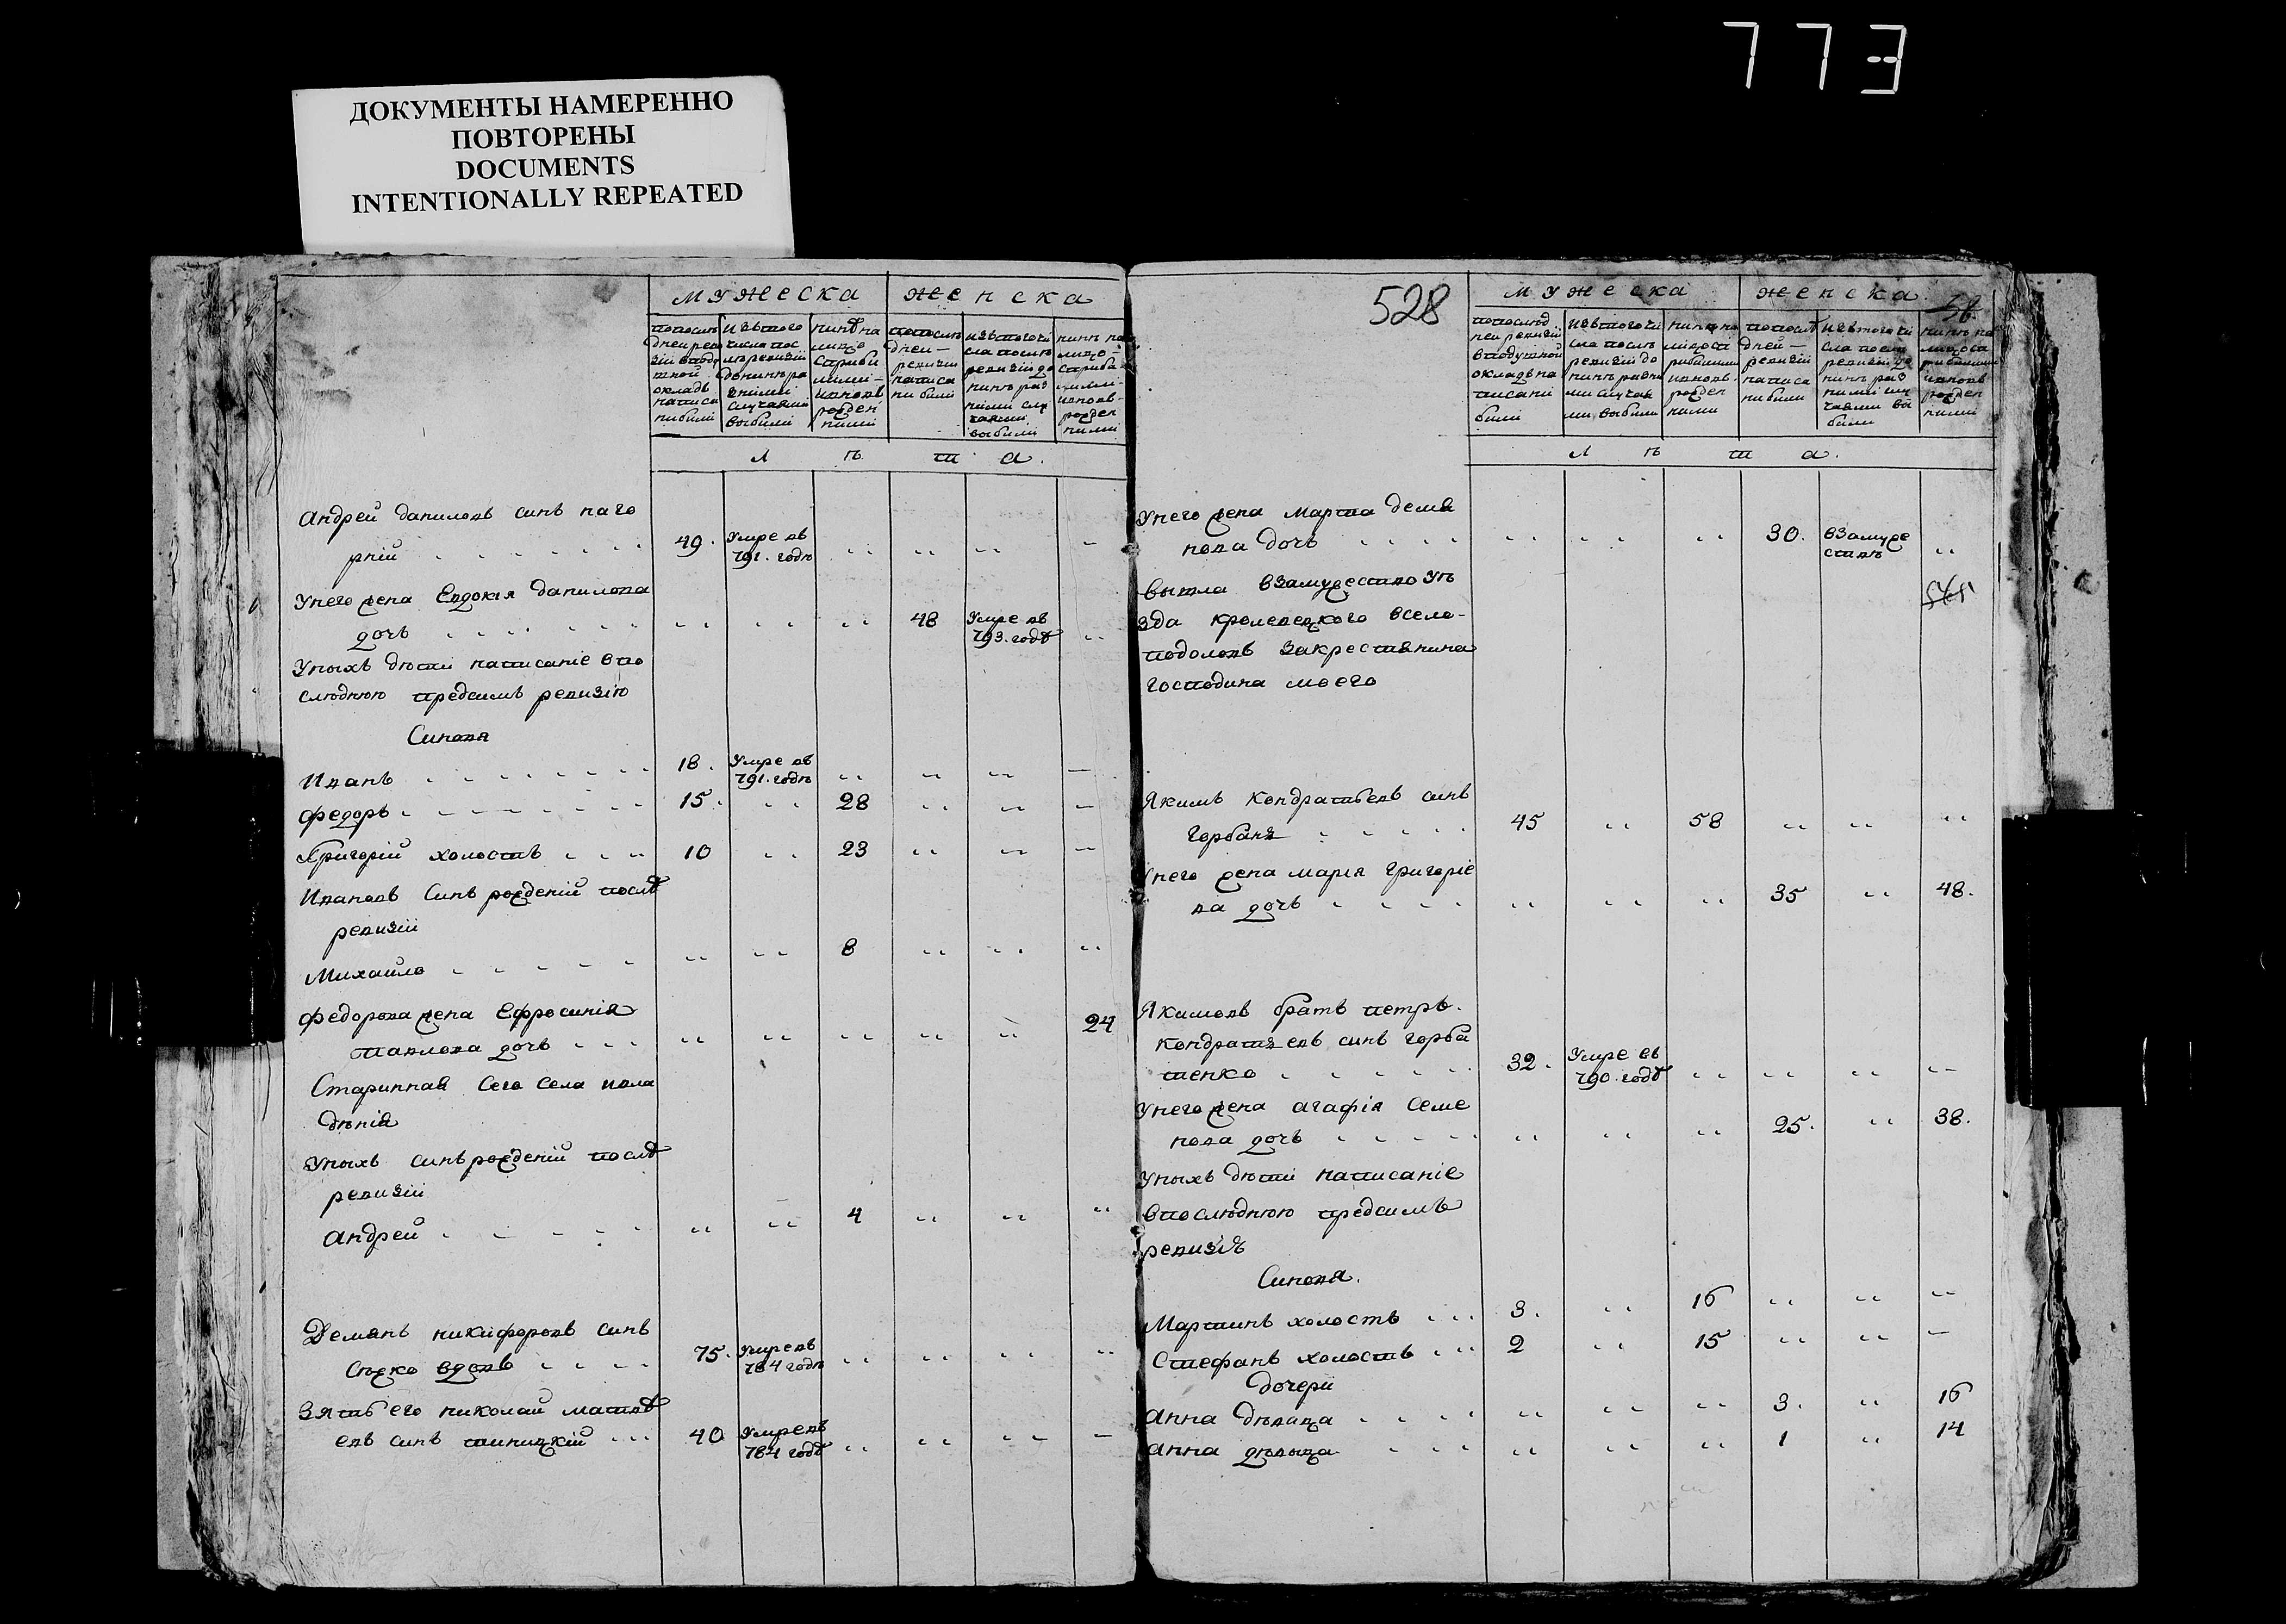 773
ДОКУМЕНТЫ НАМЕРЕННО
ПОВТОРЕНЫ
DOCUMENTS
INTENTIONALLY REPEATED
мужеска женска
попослѣ дней реви зіи вподу шной окладъ написа ни были
изътого числа пос лѣ ревизіи донинѣ ра зними случаями выбыли
нинѣ на лицо сприбы лими и вновь рожден ними
попослѣ дней ревизіи написа ни были
изътого чи сла послѣ ревизіи до нинѣ раз ними слу чаями выбыли
нинѣ на лицо сприбы лими и вновь рожден ними
лѣта.
Андрей даниловъ синъ наго
рній 49. Умре въ 791. годѣ
Унего жена Евдокія данилова
дочь 48 Умре въ 793. годѣ
Унихъ дѣти написаніе впо
слѣднюю предсимъ ревизію
Синовя
Иванъ 18. Умре въ 791. годѣ
Федоръ 15. 28
Григорій холостъ 10 23
Ивановъ Синъ рожденій послѣ
ревизіи
Михайло 8
Федорова жена Ефросинія
Павлова дочь 24
Старинная Сего Села и вла
дѣнія
Унихъ синъ рожденій послѣ
ревизіи
Андрей 4
Демянъ никифоровъ синъ
Сѣжко вдовъ 75. Умре въ 784 годѣ
Зять его николай матвѣ
евъ синъ тиницкій 40 Умре въ 784 годѣ
528
мужеска женска
58
попослѣд ней ревизіи вподушной окладъ на писани были
изътого чи сла послѣ ревизіи до нинѣ разни ми случая ми выбыли
нинѣ на лицо сп рибылими и вновь рожден ними
попослѣ дней ревизіи написа ни были
изътого чи сла послѣ ревизіи до нинѣ раз ними слу чаями вы были
нинѣ на лицо сп рибылими и вновь рожден ними
лѣта.
Унего жена Марта демя
нова дочь 30. взамуже ствѣ
Вышла взамужество уѣ
545
зда кролевецкого всело
подоловъ закрестянина
господина моего
Якимъ Кондратьевъ синъ
Горбань 45 58
Унего жена марія григоріе
ва дочь 35 48.
Якимовъ братъ петръ
кондратьевъ синъ горба
тенко 32. Умре въ 790. годѣ
Унего жена агафія Семе
нова дочь 25. 38.
Унихъ дѣти написаніе
впослѣднюю предсимъ
ревизію
Синовя.
Мартинъ холостъ 3. 16
Стефанъ холостъ 2 15
Дочери
Анна дѣвица 3. 16
Анна дѣвица 1 14